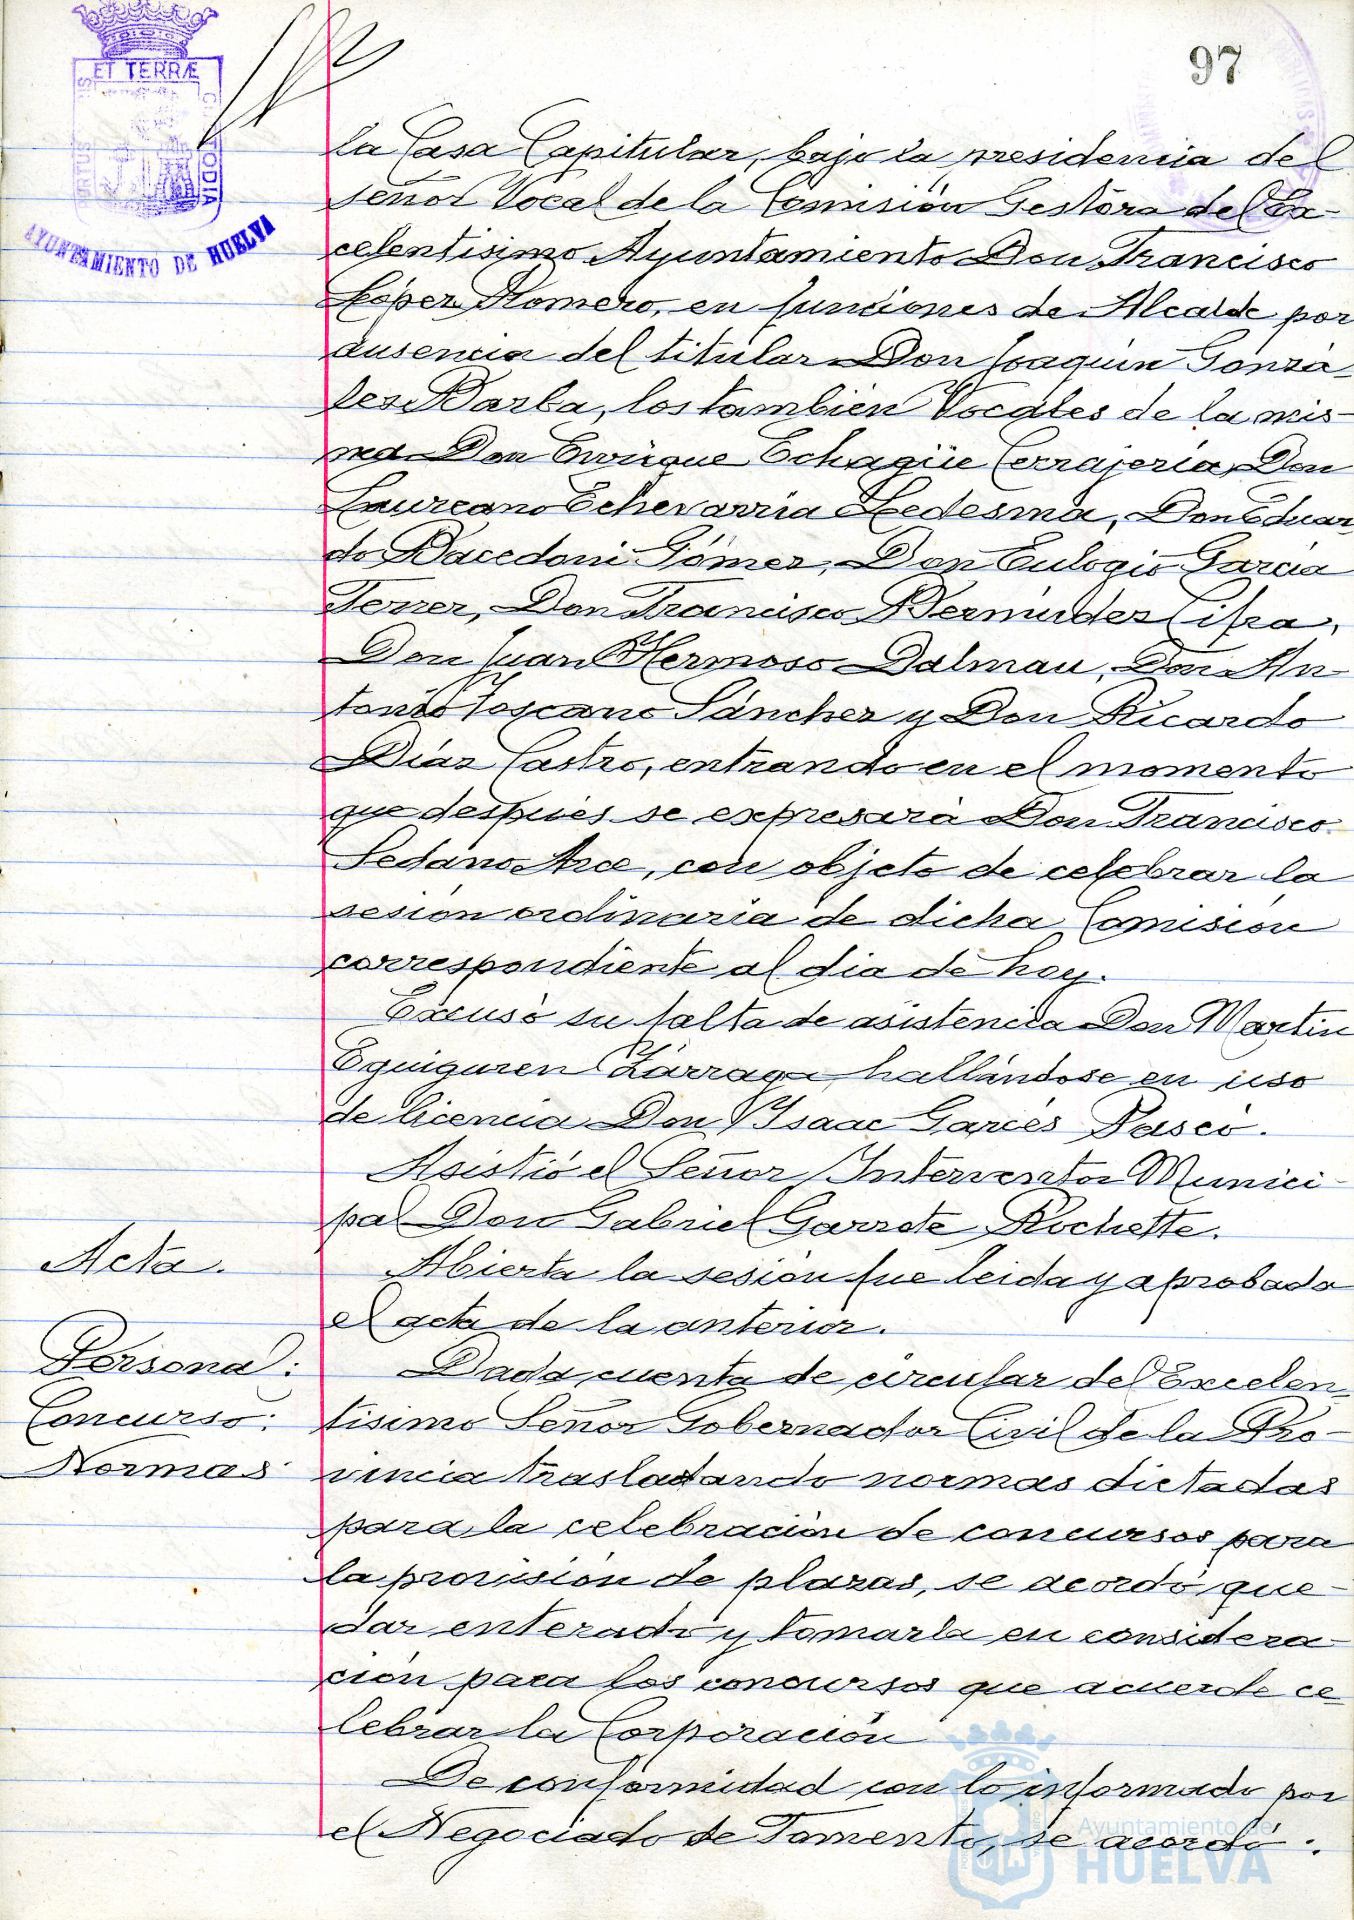 97
ET TERRÆ
CUSTODIA
AYUNTAMIENTO DE HUELVA
la Casa Capitular, bajo la presidencia del
señor Vocal de la Comisión Gestora del Ex-
celentisimo Ayuntamiento Don Francisco
López Romero, en funciones de Alcalde por
ausencia del titular Don Joaquin Gonzá-
lez Barba, los también Vocales de la mis-
ma Don Enrique Echagüe Cerrajería, Don
Laureano Echevarria Ledesma, Don Eduar-
do Bacedoni Gómez, Don Eulogio García
Ferrer, Don Francisco Bermúdez Cifra,
Don Juan Hermoso Dalmau, Don An-
tonio Toscano Sánchez y Don Ricardo
Díaz Castro, entrando en el momento
que después se expresará Don Francisco
Sedano Arce, con objeto de celebrar la
sesión ordinaria de dicha Comisión
correspondiente al dia de hoy.
Excusó su falta de asistencia Don Martin
Eguiguren Zárraga, hallándose en uso
de licencia Don Ysaac Garcés Pascó.
Asistió el Señor Interventor Munici-
pal Don Gabriel Garrote Rochette.
Acta.
Abierta la sesión fue leida y aprobada
el acta de la anterior.
Personal:
Concurso:
Normas
Dada cuenta de circular del Excelen-
tisimo Señor Gobernador Civil de la Pro-
vincia trasladando normas dictadas
para la celebración de concursos para
la provisión de plazas, se acordó que-
dar enterado y tomarla en considera-
ción para los concursos que acuerde ce-
lebrar la Corporación
De conformidad con lo informado por
el Negociado de Fomento, se acordó:
Ayuntamiento de
HUELVA